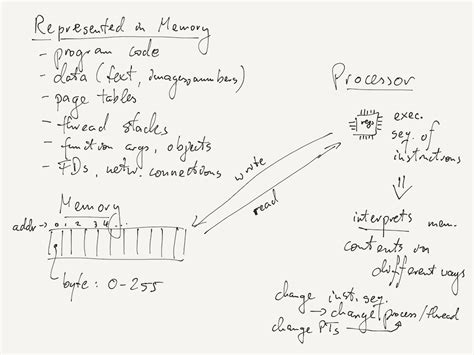 Represented in Memory
- program code
- data (text, images, numbers)
- page tables
- thread stacks
- function args, objects
- FDs, netw. connections
Memory
addr → 0 1 2 3 4 ...
byte : 0-255
write
read
Processor
regs
exec.
seq. of
instructions
interprets mem.
contents in
different ways
change inst. seq.
→ change process/thread
change PTs